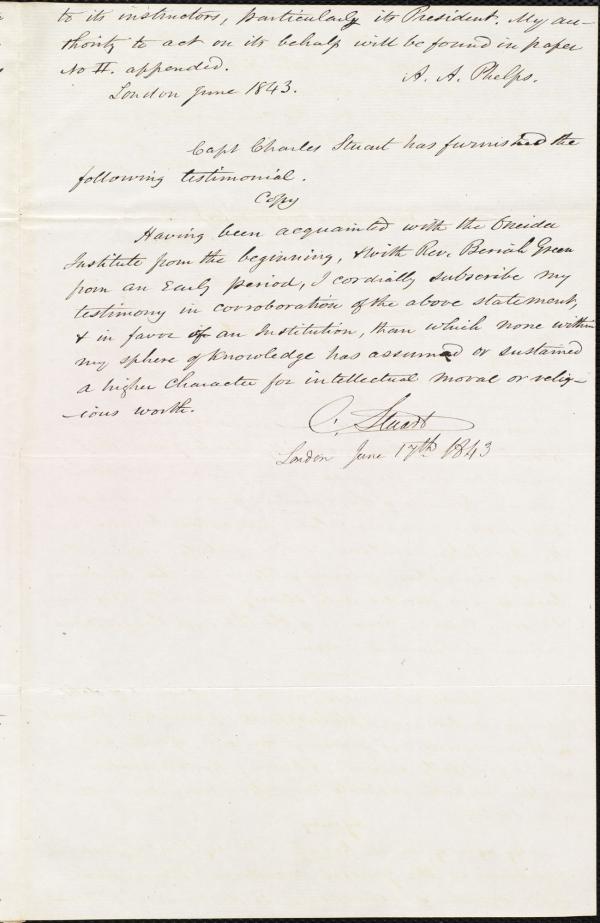 to its instructors, particularly its President. My au-
thority to act on its behalf will be found in paper
No II. appended.
A. A. Phelps.
London June 1843.
Capt Charles Stuart has furnished the
following testimonial.
Copy
Having been acquainted with the Oneida
Institute from the beginning, & with Rev. Beriah Green
from an Early period, I cordially subscribe my
testimony in corroboration of the above statement,
& in favor of an Institution, than which none within
my sphere of Knowledge has assumed or sustained
a higher Character for intellectual moral or relig-
-ious worth.
C. Stuart
London June 17th 1843